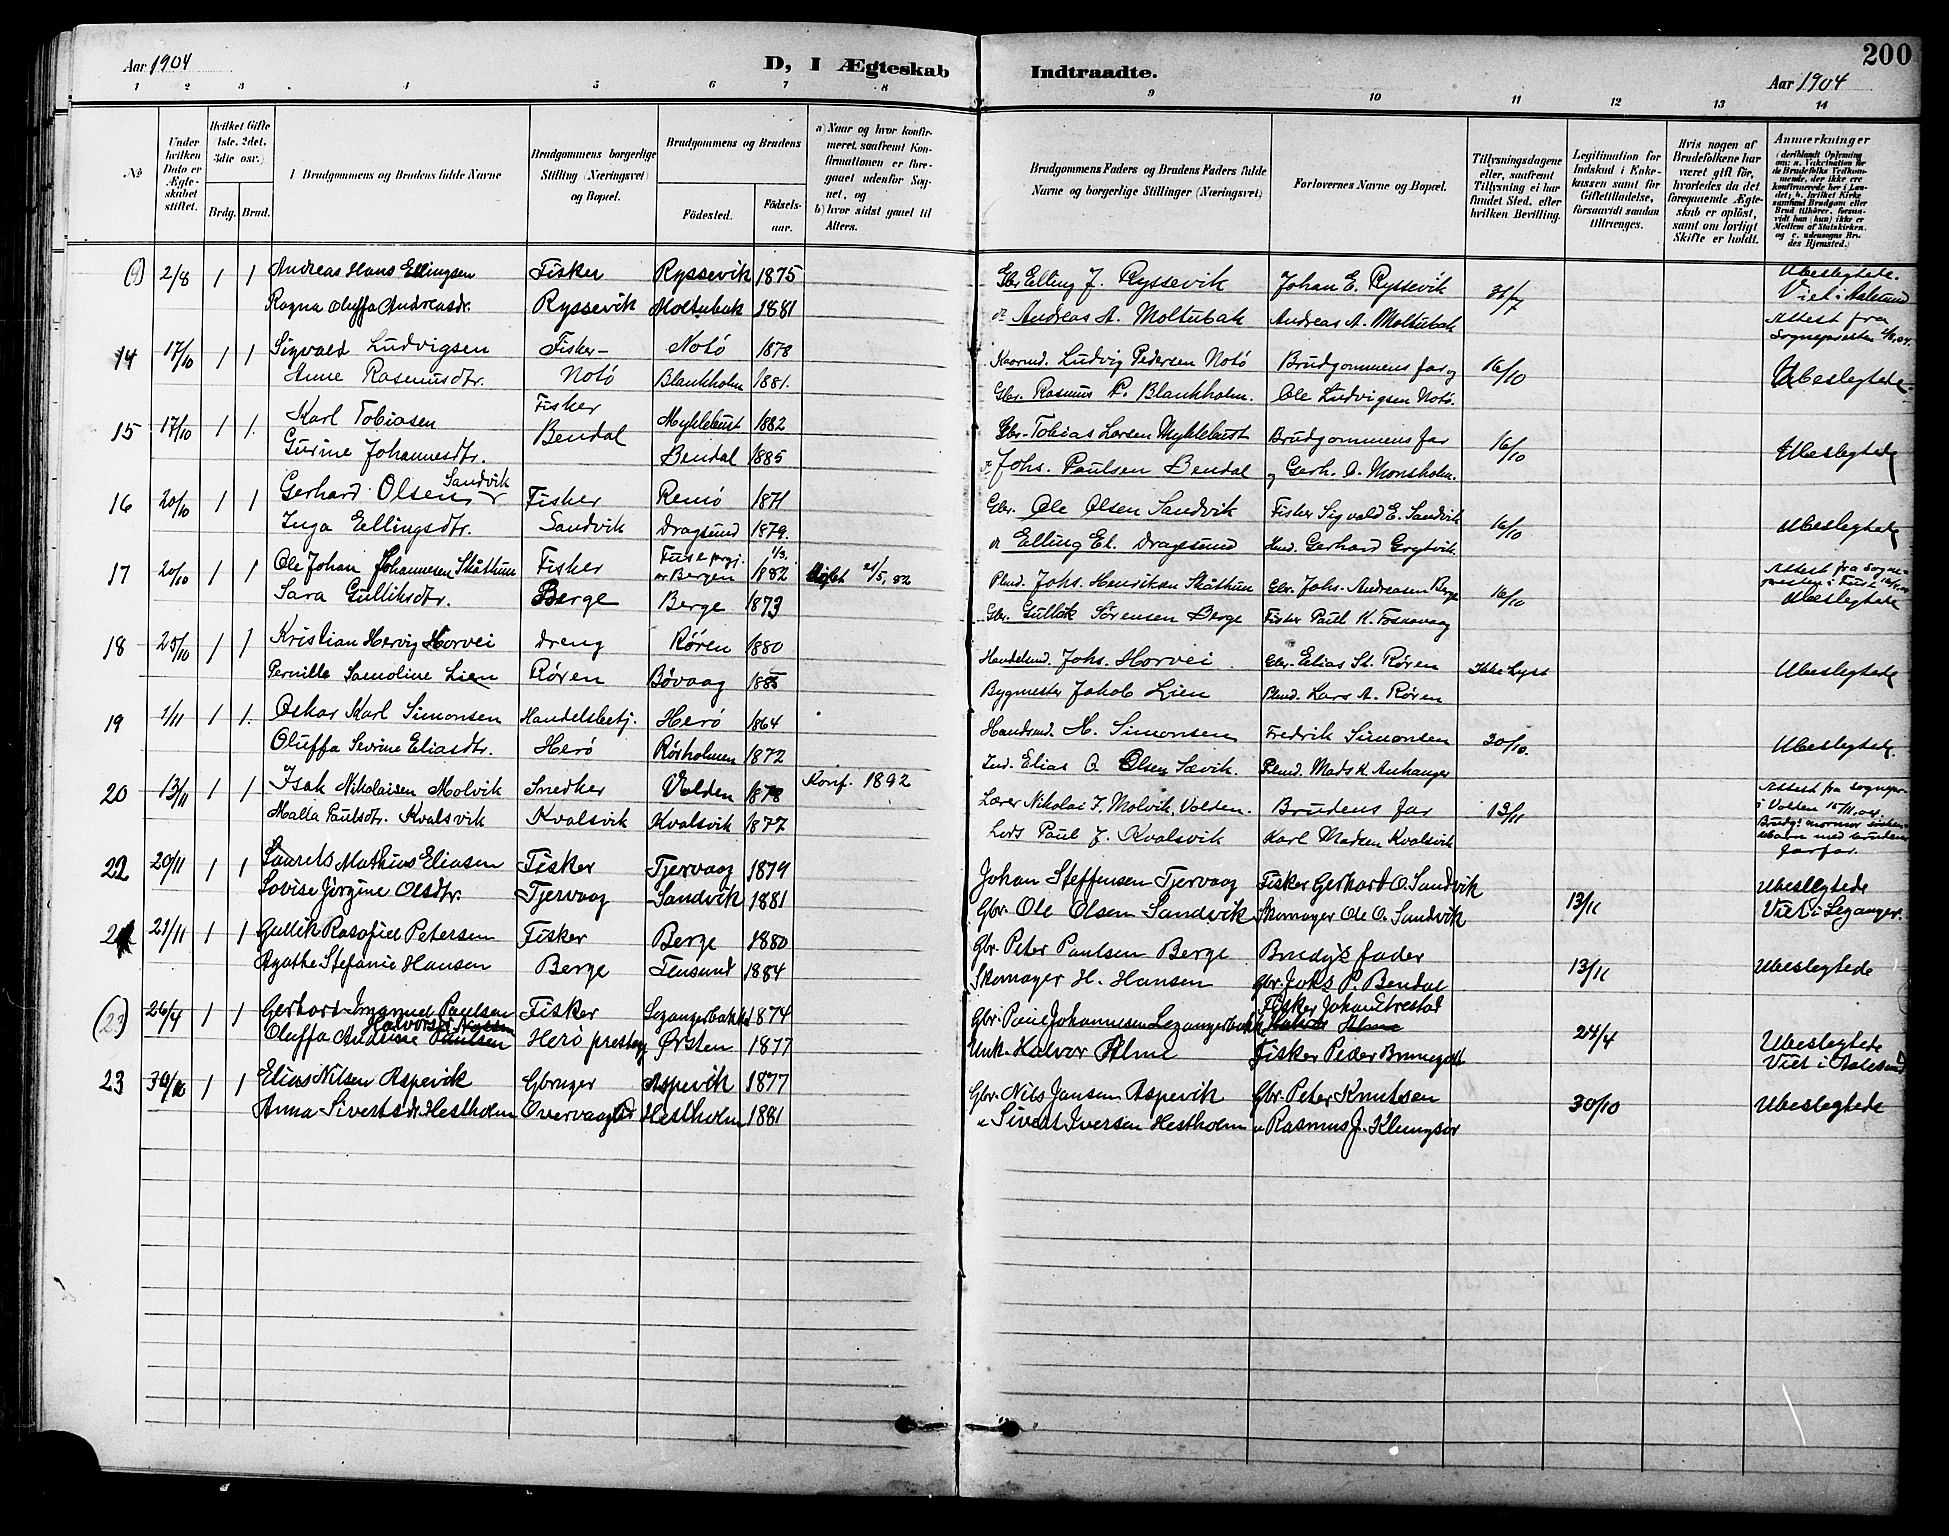 200
Aar 1904
D, I Ægteskab
Indtraadte.
Aar 1904
1 2 3 4 5 6 7 8
9 10 11 12 13 14
No
Under hvilken Dato er Ægteskabet stiftet.
Hvilket Gifte 1ste, 2det, 3die osv.)
Brdg. Brud.
I Brudgommens og Brudens fulde Navne
Brudgommens borgerlige Stilling (Næringsvei) og Bopæl.
Brudgommens og Brudens
Födested.
Födselsaar.
a) Naar og hvor konfirmeret, saafremt Konfirmationen er foregaaet udenfor Sognet, og
b) hvor sidst gaaet til Alters.
Brudgommens Faders og Brudens Faders fulde Navne og borgerlige Stillinger (Næringsvei)
Forlovernes Navne og Bopæl.
Tillysningsdagene eller, saafremt Tillysning ei har fundet Sted, efter hvilken Bevilling.
Legitimation for Indskud i Enkekassen samt for Giftetilladelse, forsaavidt saadan tiltrænges.
Hvis nogen af Brudefolkene har været gift før, hvorledes da det foregaaende Ægteskab er oplöst, samt om lovligt Skifte er holdt.
Anmærkninger
(deriblandt Oplysning om: a. Vakcination for de Brudefolks Vedkommende, der ikke ere konfirmerede her i Landet; b. hvilket Kirkesamfund Brudgom eller Brud tilhörer, forsaavidt han (hun) ikke er Medlem af Statskirken, og c. udensogns Brudes Hjemsted.)
(9) 2/8 1 1 Andreas Hans Ellingsen Fisker Ryssevik 1875 Gbr Elling J. Ryssevik Johan E. Ryssevik 31/7 Ubeslegtede. Viet i Aalesund
Ragna Oluffa Andreasdr. Ryssevik Moltubak 1881 Andreas A. Moltubak Andreas A. Moltubak Attest fra Sognepresten
14 17/10 1 1 Sigvald Ludvigsen Fisker Notö 1878 Kaarmd. Ludvig Pedersen Notö Brudgommens far og 16/10 Ubeslegtede
Anne Rasmusdtr. Notö Blankholm 1881. Gbr. Rasmus P. Blankholm. Ole Ludvigsen Notö.
15 17/10 1 1. Karl Tobiasen Fisker Myklebust 1882 Gbr. Tobias Larsen Myklebust Brudgommens far 16/10 Ubeslegtede
Gurine Johannesdtr. Bendal Bendal 1885 Johs. Paulsen Bendal og Gerh. O. Monsholm.
16 20/10 1 1 Gerhard Olsen Sandvik Fisker Remö 1871 Gbr. Ole Olsen Sandvik Fisker Sigvald E. Sandvik 16/10 Ubeslegtede
Inga Ellingsdtr. Sandvik Dragsund 1879. Elling El. Dragsund Gerhard Grytvik
17 20/10 1 1 Ole Johan Johannesen Skåthun Fisker Fuse prgj. or Bergen 1/3. 1882 21/5, 82 Plmd. Johs. Henriksen Skåthun Gbr. Johs. Andreasen Berge 16/10 Attest fra Sognepresten i Fuse
Sara Gulliksdtr. Berge Berge 1873 Gbr. Gullik Sörensen Berge Fisker Paul K. Fosnavaag Ubeslegtede
18 25/10 1 1 Kristian Hervig Horvei dreng Rören 1880 Handelsmd. Johs. Horvei Gbr. Elias St. Rören Ikke Lyst Ubeslegtede
Pernille Samoline Lien Rören Bövaag 1885 Bygmester Jakob Lien Plmd. Lars A. Rören
19 1/11 1 1. Oskar Karl Simonsen Handelsbetj. Herö 1864 Handsmd. H. Simonsen Fredrik Simonsen 30/10. Ubeslegtede
Oluffa Sevrine Eliasdtr. Herö Rörholmen 1872 Ind. Elias O. Olsen Sævik. Plmd. Mads K. Anhanger
20 13/11 1 1 Isak Nikolaisen Molvik Snedker Volden 1878 Konf. 1892 Lærer Nikolai I. Molvik, Volden. Brudens far 13/11 Attest fra sognepr. i Volden 15/11.04.
Malla Paulsdtr. Kvalsvik Kvalsvik Kvalsvik 1877 Lods Paul J. Kvalsvik Karl Madsen Kvalsvik Brudg: mormor söskenbarn med brudens farfar.
22 20/11 1 1 Laurets Mathius Eliasen Fisker Tjervaag 1879 Johan Steffensen Tjervaag Fisker Gerhard O. Sandvik 13/11 Ubeslegtede
Lovise Jörgine Olsdtr. Tjervaag Sandvik 1881 Gbr. Ole Olsen Sandvik Skomager Ole O. Sandvik Viet i Leganger.
21/11 1 1 Gullik Rasofiel Petersen Fisker Berge 1880 Gbr. Peter Paulsen Berge Brudgs fader 13/11 Ubeslegtede
Agathe Stefanie Hansen Berge 1884 Skomager H. Hansen Gbr. Johs P. Bendal
(23) 26/4 1 1 Gerhard Ingmund Paulsen Fisker Legangerbakke 1874 Gbr. Paul Johannesen Legangerbakk Fisker Johan Strestad 24/4 Ubeslegtede
Oluffa Andrine Paulsen Herö prestegj Örsten 1877 Halvor Alme Fisker Peder Brunegot Viet i Aalesund
23 30/10 1 1 Elias Nilsen Aspevik Gbruger Aspevik 1877 Gbr. Nils Jansen Aspevik Gbr. Peter Knutsen 30/10 Ubeslegtede
Anna Sivertsdr. Hestholm Overvaag Hestholm 1881 " Sivert Iversen Hestholm " Rasmus J. Klungsör